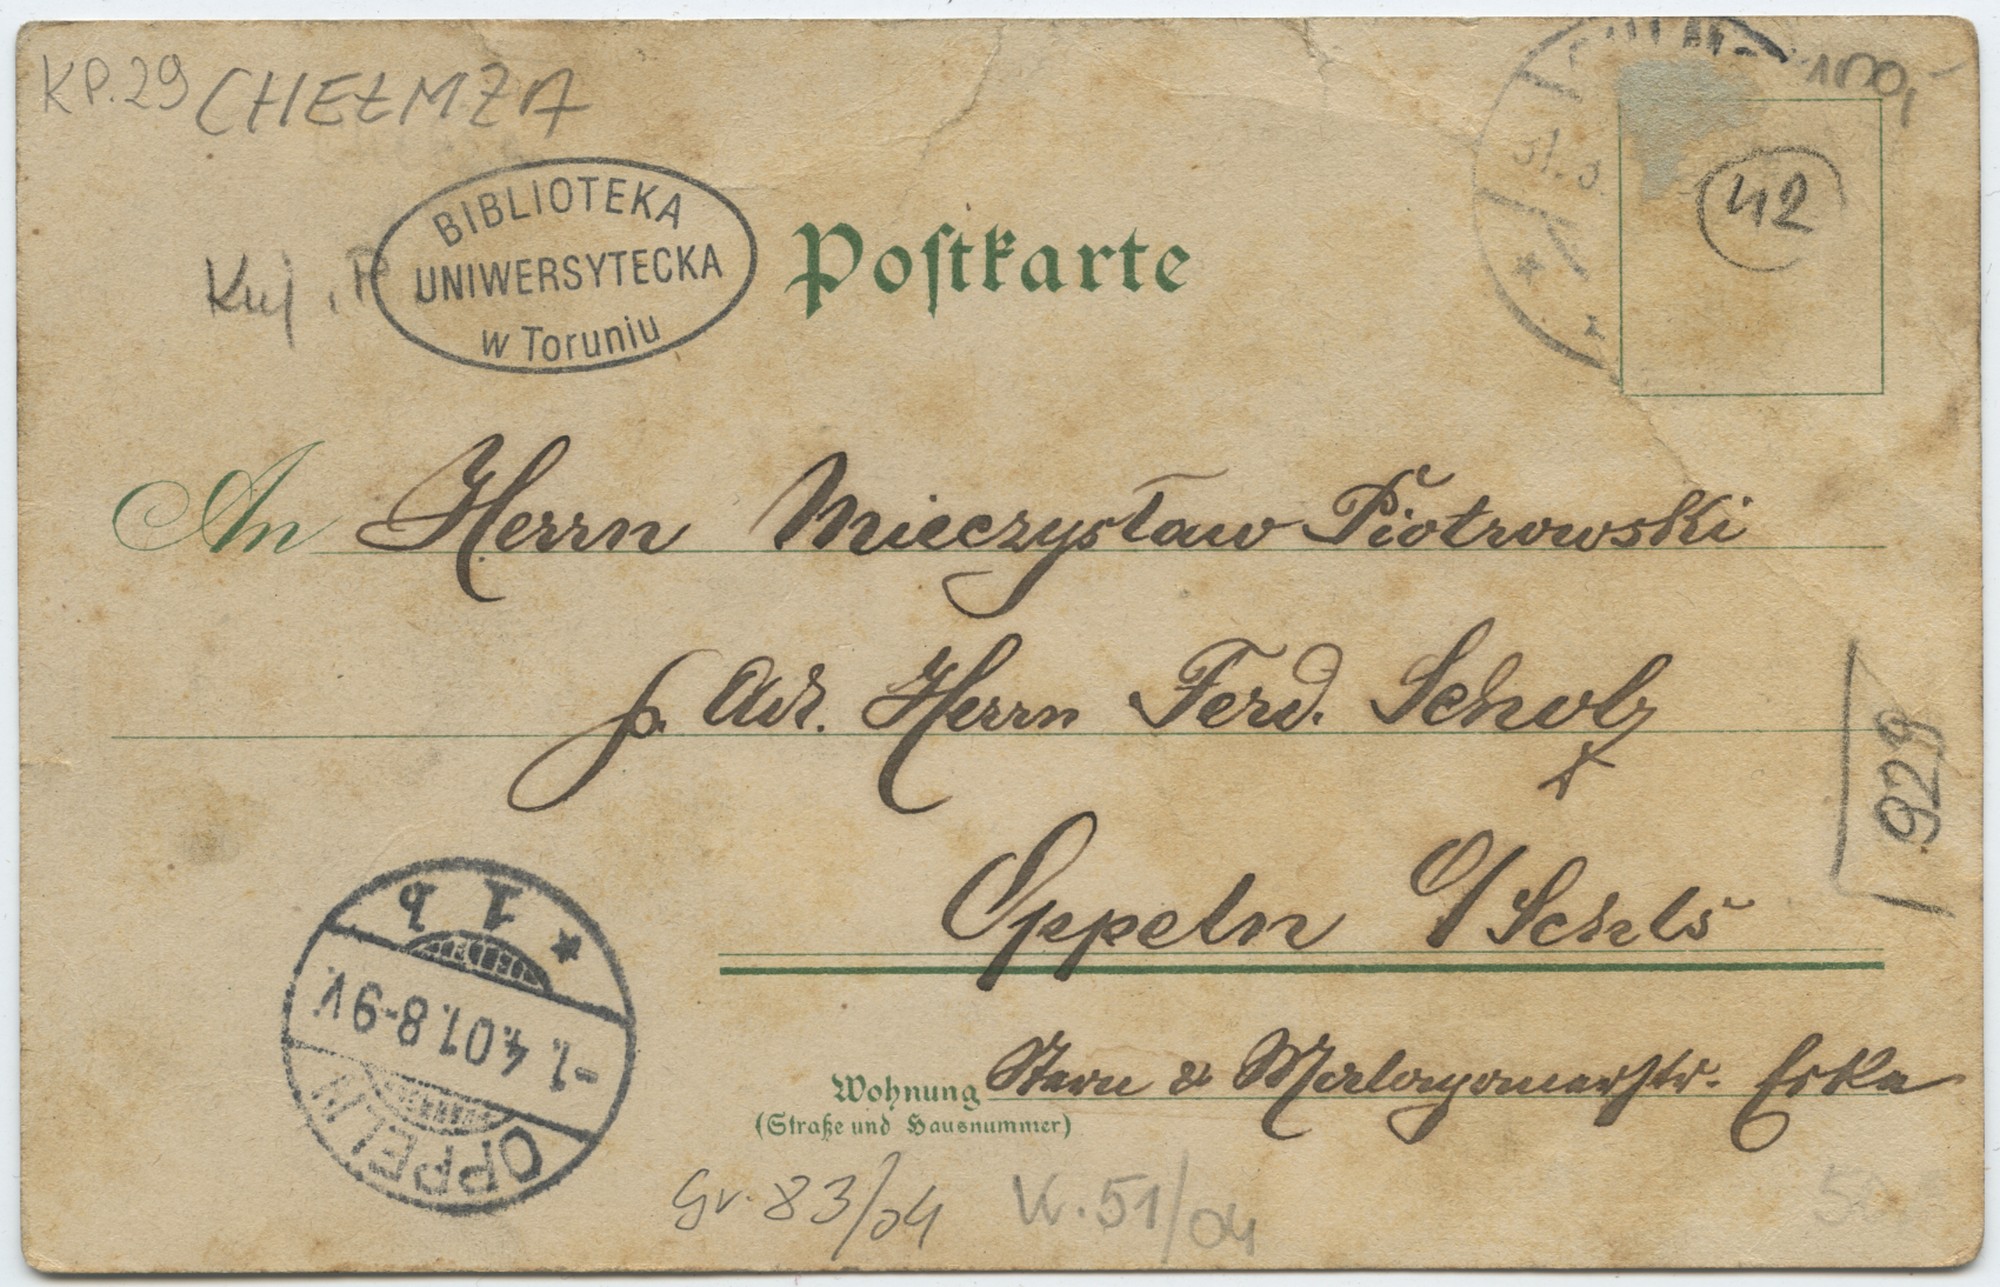 KP.29 CHEŁMŻA
100,
42
Kuj. P
BIBLIOTEKA
UNIWERSYTECKA
w Toruniu
Postkarte
31.3.
An Herrn Mieczysław Piotrowski
p. Adr. Herrn Ferd. Scholz
929
Oppeln O/Schls
1 b
-1.4.01.8-9V.
OPPELN
Wohnung
(Straße und Hausnummer)
Stern & Ecke
Gr. 83/04 W. 51/04